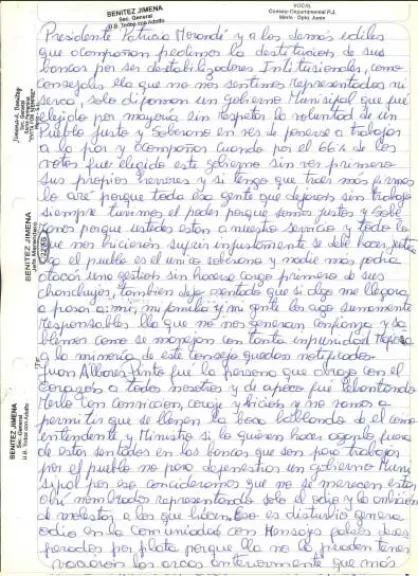 BENITEZ JIMENA
Sec. General
U.B. Todos con Adolfo
VOCAL
Consejo Departamental P.J.
Merlo - Dpto. Junín
Presidente Patricio Morandé y a los demás ediles
que acompañan pedimos la destitución de sus
bancas por ser destabilizadores Intitusionales, como
consejales lla que no nos sentimos Representados ni
serca, solo difaman un gobierno Munisipal que fué
elejido por mayoria sin respetar la voluntad de un
Pueblo Justo y Soberano en ves de ponerse a trabajar
a la par y acompañar cuando por el 66% de los
votos fué elejido este gobierno sin ver primero
sus propios herrores y si tengo que traer más firmas
lo aré porque toda esa gente que dejaron sin trabajo
siempre tuvimos el poder porque somos justos y Sobe
ranos porque ustedes estan a nuestro servicio y todo lo
que nos hicieron sufrir injustamente se debe hacer justicia
el pueblo es el unico soberano y nadie más podria
atacar una gestion sin hacerse cargo primero de sus
chonchujos, tambien dejo asentado que si algo me llegara
a pasar a: mi, mi familia y mi gente los ago sumamente
Responsables lla que no nos generan confianza y sa
blemos como se manejan con tanta impunidad
a la mineria de este consejo quedan notificados
Juan Alvares Pinto fué la persona que abrazo con el
Corazón a todos nosotros y de apoco fué lebantando
Merlo con conviccion, coraje y y no vamos a
permitir que se llenen la boca hablando de el como
intendente y Ministro si lo quieren hacer aganlo fuera
de estar sentados en las bancas que son para trabajar
por el pueblo no para defenestrar un gobierno Muni
sipal por eso concideramos que no se merecen estar
ahí nombrados representando solo el odio y la ambicion
de molestar a los que disturbio genera
odio en la comunidad con Mensajes falsos deses
perados por plata porque lla no la pueden tener
vaciaron las arcas anteriormente que más
BENITEZ JIMENA
BENITEZ JIMENA
Sec. General
U.B. Todos con Adolfo